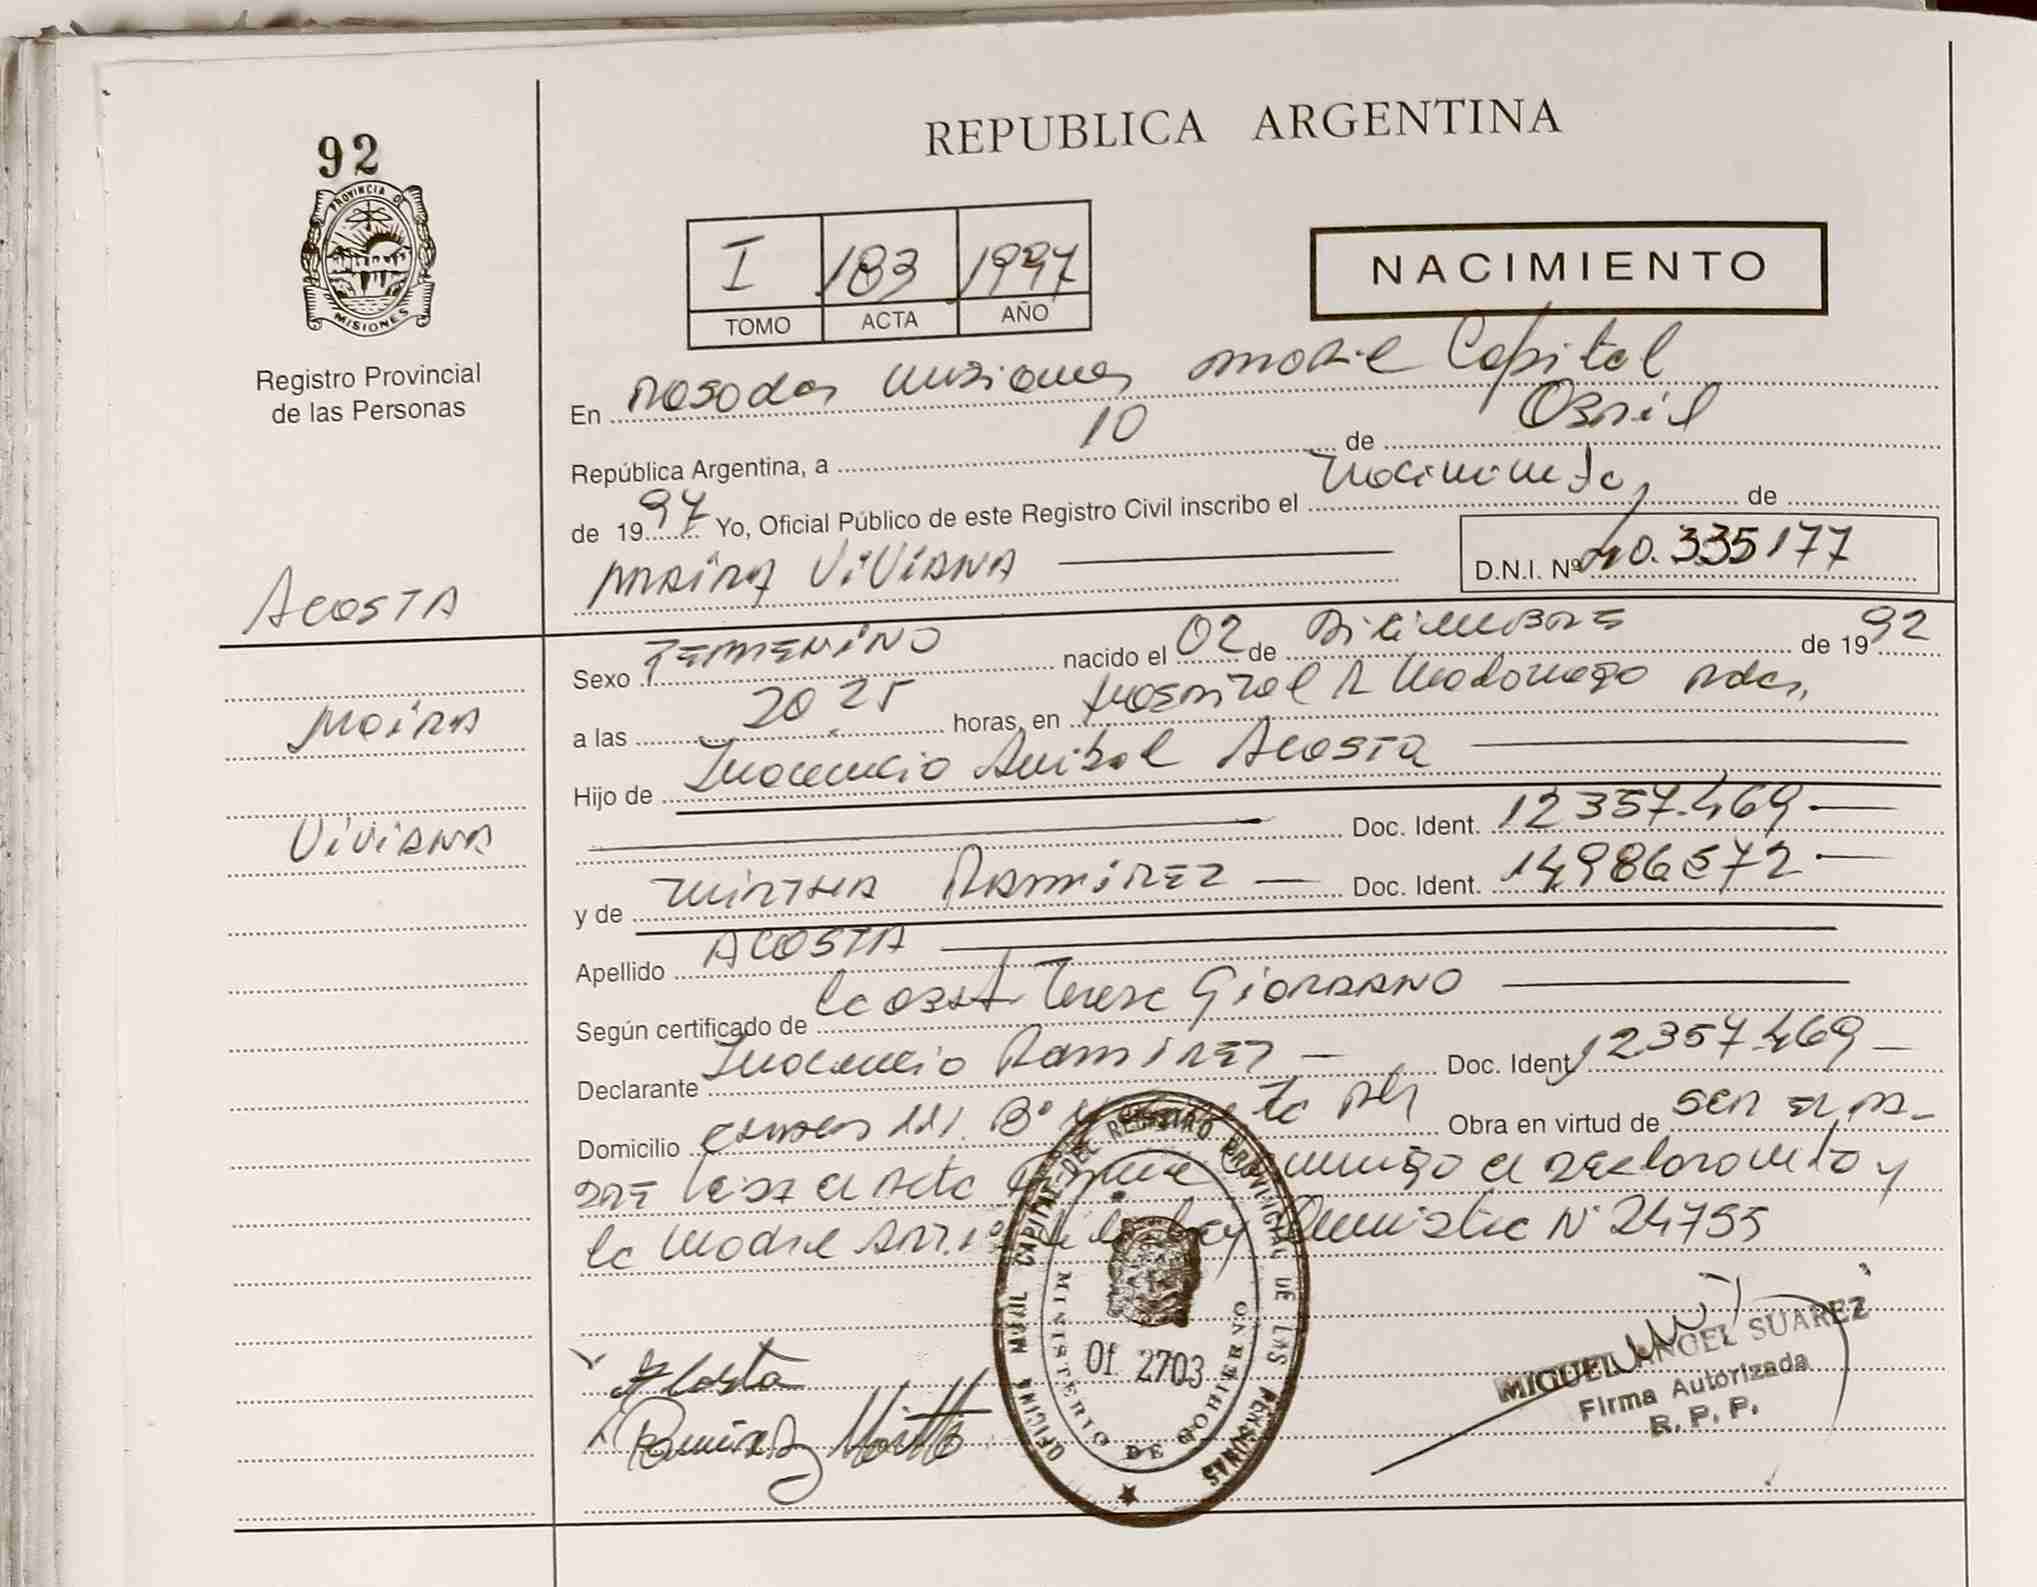 92
PROVINCIA DE
MISIONES
Registro Provincial
de las Personas
ACOSTA
MAIRA
VIVIANA
REPUBLICA ARGENTINA
I 183 1997
TOMO ACTA AÑO
NACIMIENTO
En Posadas Misiones Movil Capital
República Argentina, a 10 de Abril
de 1997 Yo, Oficial Público de este Registro Civil inscribo el Nacimiento, de
MAIRA VIVIANA D.N.I. Nº 40.335177
Sexo FEMENINO nacido el 02 de Diciembre de 1992
a las 20,25 horas, en Hospital R Madariaga Pdas,
Hijo de Inocencio Anibal Acosta
Doc. Ident. 12357.469
y de MIRTHA RAMIREZ Doc. Ident. 14986572
Apellido ACOSTA
Según certificado de la Obst Teresa GIORDANO
Declarante Inocencio RAMIREZ Doc. Ident 12357.469
Domicilio 111 Bº Obra en virtud de SER EL PA-
DRE Leida el Acta Firma Conmigo el Declarante y
la Madre Ley Nº 24755
OFICINA MOVIL CAPITAL DEL REGISTRO PROVINCIAL DE LAS PERSONAS
MINISTERIO DE GOBIERNO
Of 2703
Acosta
Ramirez Mirtha
MIGUEL ANGEL SUAREZ
Firma Autorizada
R. P. P.